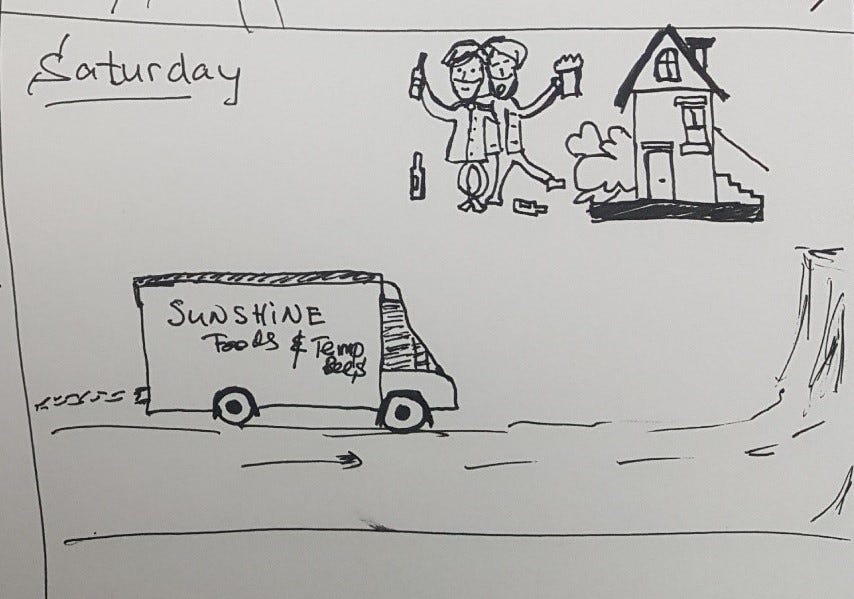 Saturday
SUNSHINE
Foods & Temp
Beds